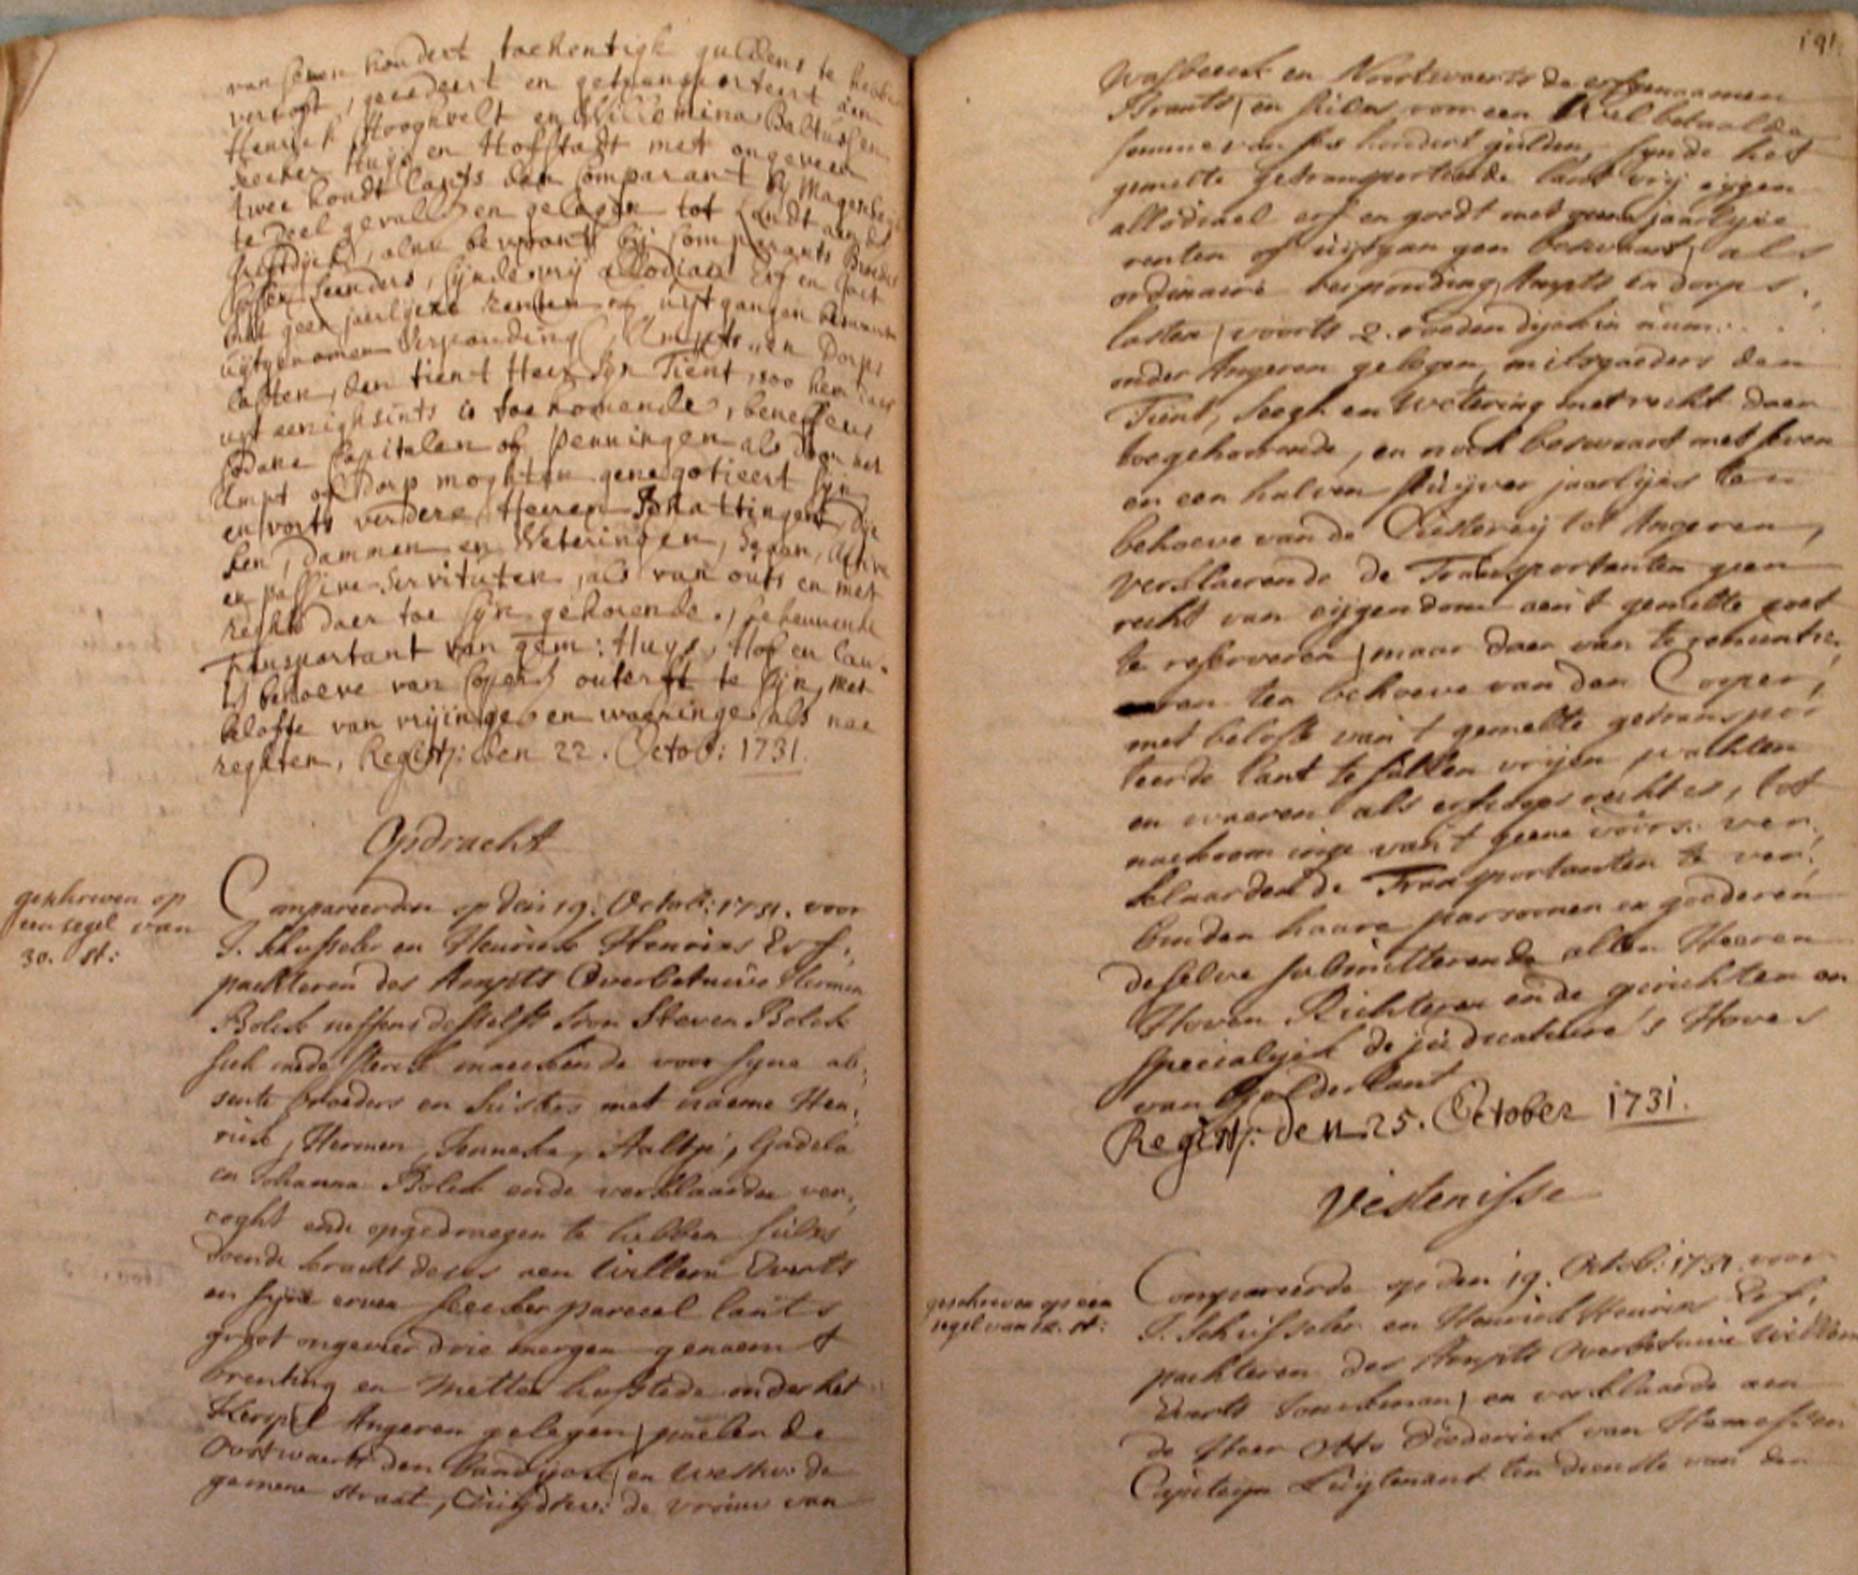 van seven hondert taehentigh guldens te hebben
verkogt, gecedeert en getransporteert aen
Henrick Hooghvelt en Willemina Baltussen
seeker Huys en Hofstadt met ongeveer
twee hondt lants den Comparant bij Magescheyt
te deel gevallen en gelegen tot aen den
bewoont bij Comparants Broeder
Leenders, sijnde vrij allodiael Erf en Goet
met geen jaerlijxe renten of uijtgangen beswaert
uijtgenomen Verponding, Ampts en Dorps
lasten, den tient Heer sijn Tient, soo hem daer
uyt eenighsints is toekomende, beneffens
sodane Capitalen of penningen als door het
Ampt of Dorp moghten genegotieert sijn
en vorts verdere Heeren Schattingen, Dij
ken, dammen en Weteringen, Wegen, Active
en passive Servituten, als van outs en met
reght daer toe sijn gehorende, bekennende
Transportant van gem: Huys, Hof en Lan.
ts behoeve van Copers outerft te sijn, met
belofte van vrijinge en waeringe als nae
reghten, Regist: den 22. Octob: 1731.
Opdracht
geschreven op
een segel van
30. st:
Compareerden op den 19. Octob: 1731. voor
J. Schisseler en Henrick Henrixs Erf,
pachteren des Ampts Overbetuwe Hermen
Bolck neffens desselfs soon Steven Bolck
sich mede sterck maeckende voor sijne ab,
sente broeders en susters met naeme Hen,
rick, Hermen, Jenneke, Aaltje, Gadela
en Johanna Bolck ende verklaarden ver,
coght ende opgedraegen te hebben sulx
doende kracht deses aen Willem Everts
en sijne erven seecker parceel lants
groot ongeveer drie mergen genaemt
Brenting en Metten hofstede onder het
Kerspel Angeren gelegen, paelende
Oostwaerts den bandijck, en Westw: de
gemene straat, Zuijdw: de vrouw van
191.
Wasbeeck en Noortwaerts de erfgenaemen
Brants, en sulx voor een Wel betaalde
somme van ses hondert gulden, synde het
gemelte getransporteerde lant vrij eijgen
allodiael erf en goedt met geene jaarlyxe
renten of uijtgangen beswaart, als
ordinaire verponding, Ampts en dorps
lasten, voorts 2. roeden dijck in num: . . .
onder Angeren gelegen, mitsgaeders den
Tient, Seegh en Wetering met recht daer
toegehorende, en noch beswaart met seven
en een halven stuijver jaarlijx ten
behoeve van de Custerij tot Angeren,
verklaerende de Transportanten geen
recht van eijgendom aen 't gemelte goet
te reserveren, maar daer van te renuntie,
eren ten behoeve van den Coeper,
met belofte van 't gemelte getranspor
teerde lant te sullen vrijen, wachten
en waeren als erfcoops recht is, tot
naekominge van 't geene voors: ver,
klaarden de Transportanten te ver,
binden haare persoonen en goederen
deselve submitterende allen Heeren
Hoven Richteren ende gerichten en
specialijck de judicature 's Hoves
van Gelderlant
Regist: den 25. October 1731.
Vestenisse
geschreven op een
segel van 12. st:
Compareerde op den 19. Octob: 1731. voor
J. Schisseler en Henrick Henrixs Erf,
pachteren des Ampts Overbetuwe Willem
Everts Sonckman, en verklaarde aen
de Heer Otto Diederick van Hemessen
Capiteijn Luijtenant ten dienste van den